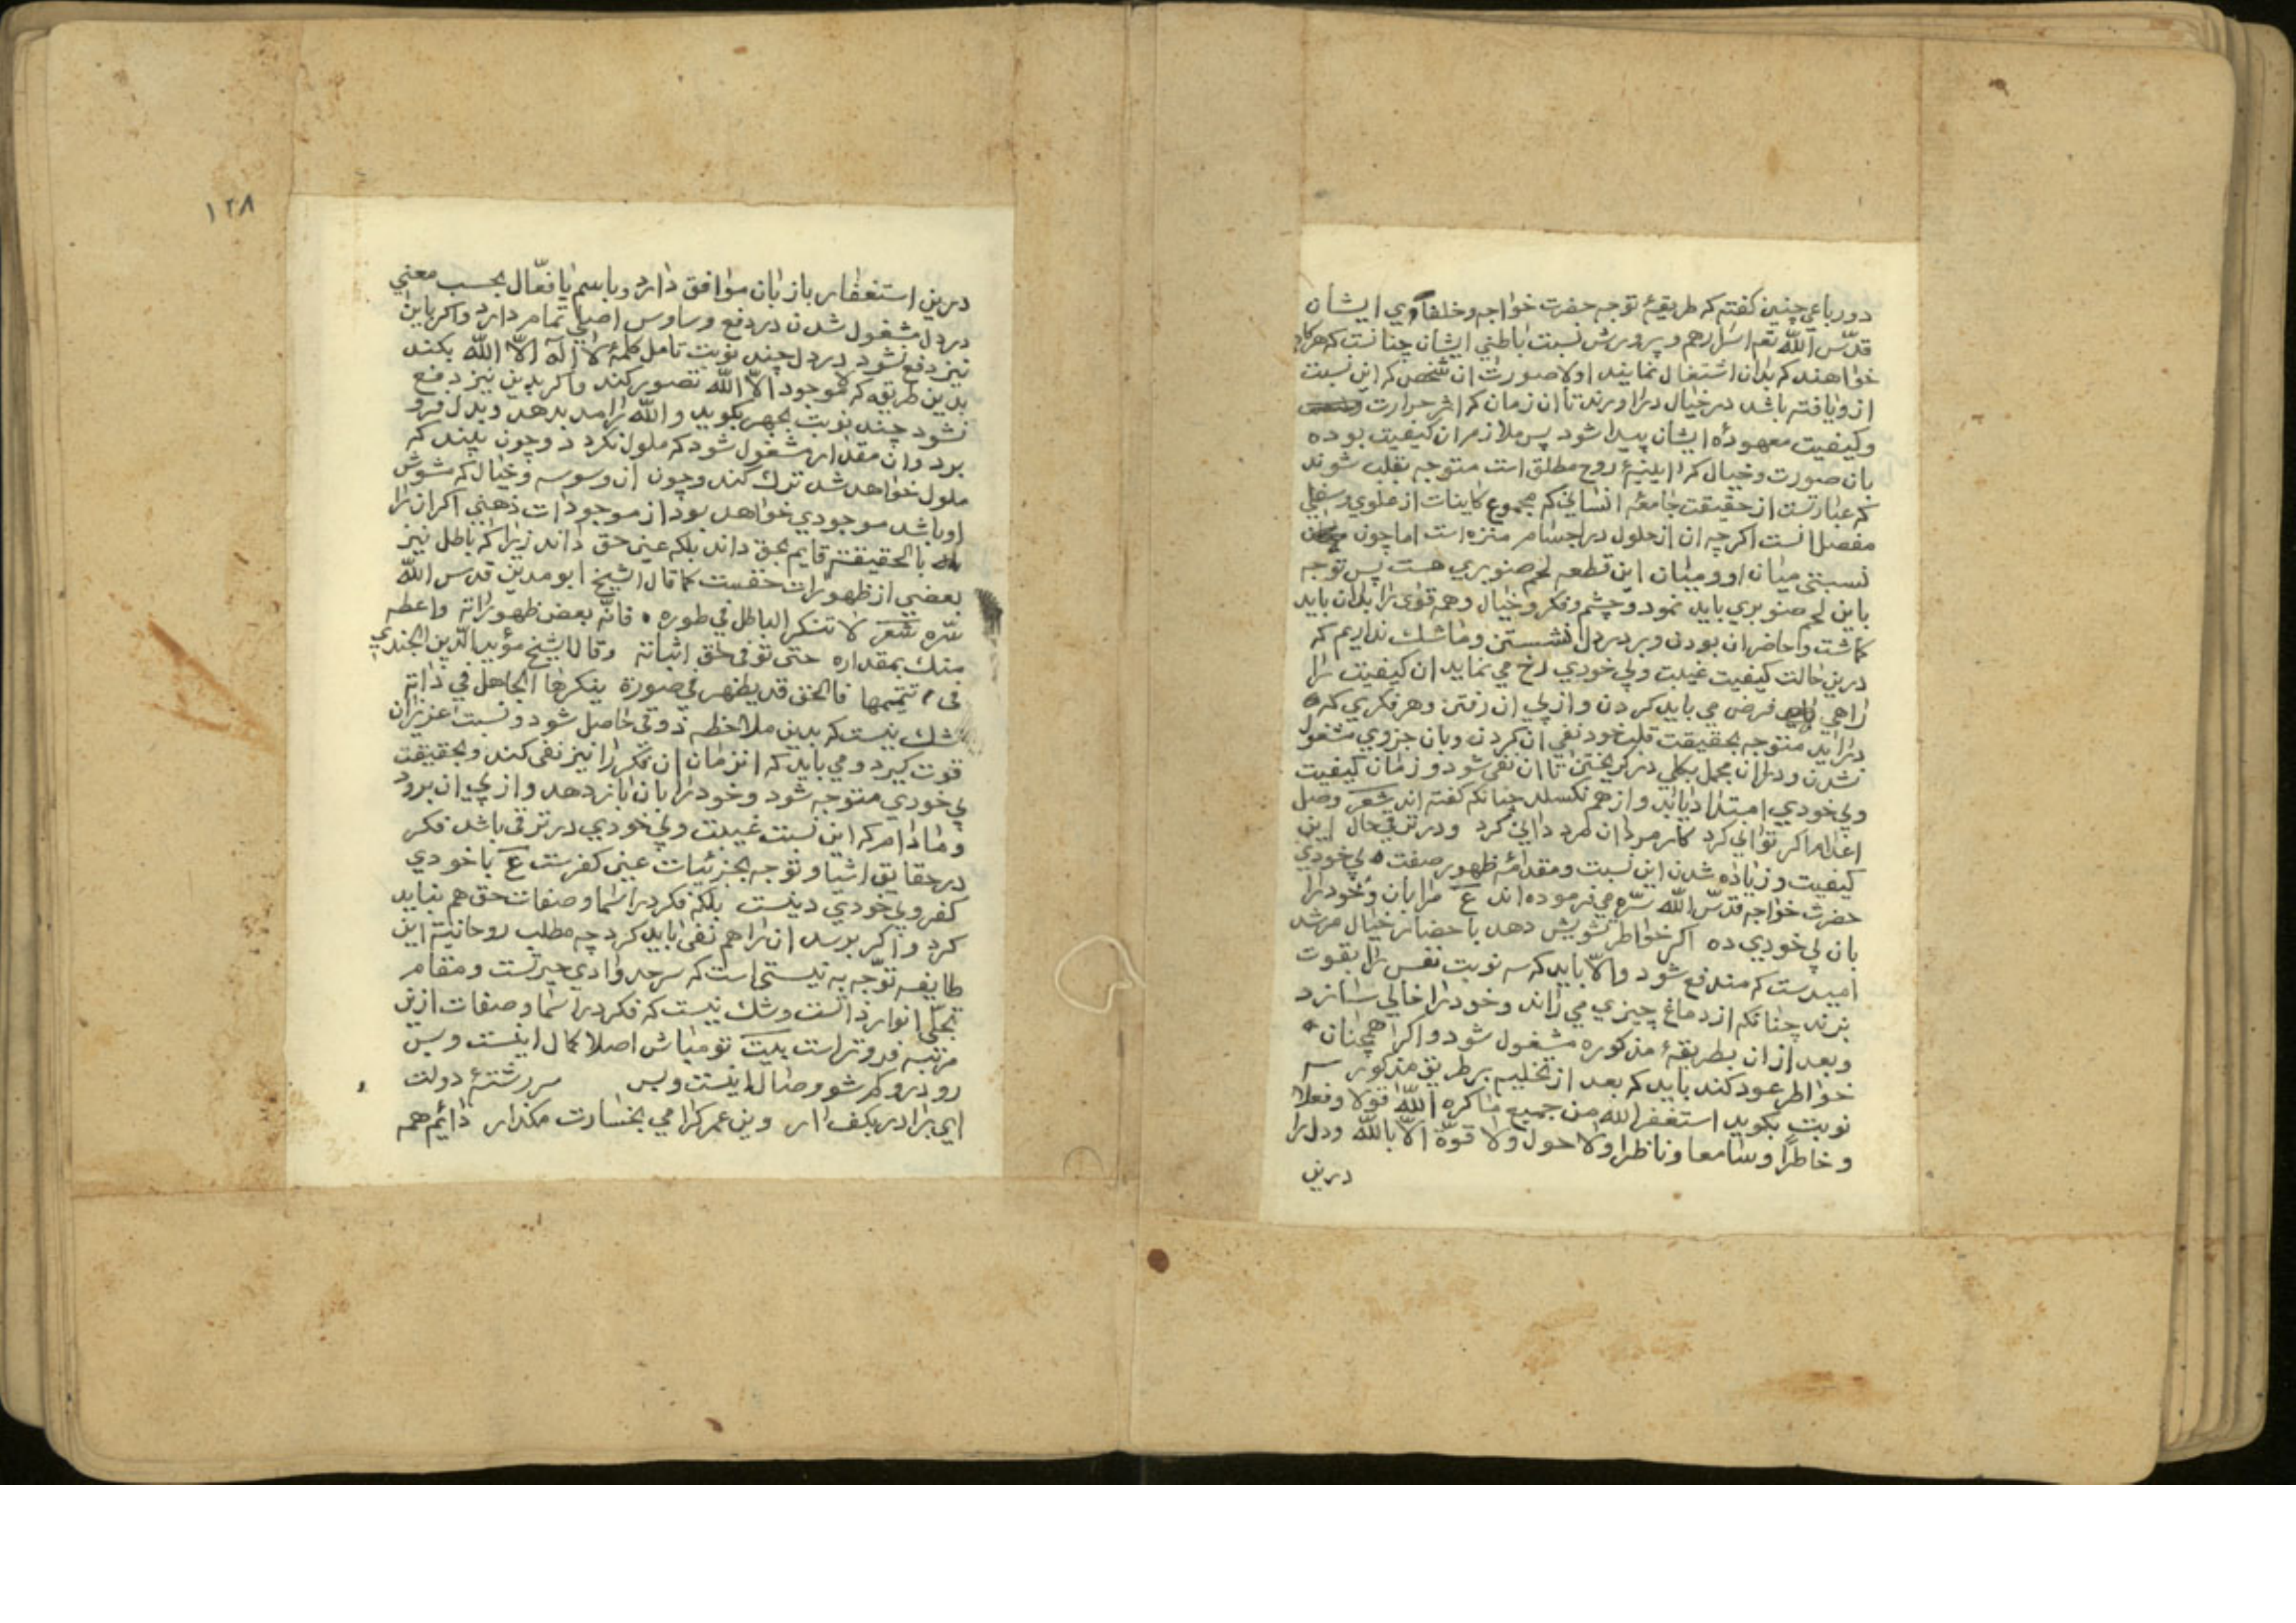 دو رباعی چنین کفته که طریقهٔ توجه حضرت خواجه و خلفاوی ایشان
قدّس اللّه تعم اسرارهم و پرورش نسبت باطنی ایشان چنانست که هرکاه
خواهند که بدان اشتغال نمایند اولا صورت ان شخص که این نسبت
ازو یافته باشد در خیال دراورند تا ان زمان که اثر حرارت
وکیفیت معهودهٔ ایشان پیدا شود پس ملازم ان کیفیت بوده
بان صورت و خیال که اینهٔ روح مطلق است متوجه بقلب شوند
که عبارتست از حقیقت جامعهٔ انسانی که مجموع کاینات از علوی و سفلی
مفصل انست اکرچه ان از حلول در اجسام منزه است اما چون
نسبتی میان او و میان این قطعه لحم صنوبری هست پس توجه
باین لحم صنوبری باید نمود و چشم و فکر و خیال و همه قوی را بدان باید
کماشت و حاضر ان بودن و بر در دل نشستن و ما شک نداریم که
درین حالت کیفیت غیبت و بی خودی رخ می نماید ان کیفیت را
راهی فرض می باید کردن و از پی ان رفتن و هر فکری که
دراید متوجه بحقیقت قلب خود نفی ان کردن و بان جزوی مشغول
نشدن و دران مجمل بکلی در کریختن تا ان نفی شود و زمان کیفیت
و بی خودی امتداد یابد و از هم نکسلد چنانکه کفته اند شعر وصل
اعدام اکر توانی کرد کار مردان مرد دانی کرد و در ترقی حال این
کیفیت و زیاده شدن این نسبت و مقدامهٔ ظهور صفت بی خودی
حضرت خواجه قدّس اللّه سرّه می فرموده اند ع مرا بان و خود را
بان بی خودی ده اکر خواطر تشویش دهد باحضار خیال مرشد
امیدست که مندفع شود والاّ باید که سه نوبت نفس را بقوت
بزند چنانکم از دماغ چیزی می راند و خود را خالی سازد
وبعد ازان بطریقهٔ مذکوره مشغول شود و اکر همچنان
خواطر عود کند باید که بعد از تخلیه بر طریق مذکور سه
نوبت بکوید استغفر الله من جمیع ما کره اللّه قولا وفعلا
و خاطرًا وسامعا وناظرا ولا حول ولا قوّة الاّ باللّه ودل را
درین
١٢٨
درین استغفار بازبان موافق دارد و باسم یا فعّال بحسب معنی
در دل مشغول شدن در دفع وساوس اصلی تمام دارد و اکر باین
نیز دفع نشود در دل چند نوبت تامل کلمهٔ لا اله الاّ اللّه بکند
بدین طریقه که لا موجود الاّ اللّه تصور کند و اکر بدین نیز دفع
نشود چند نوبت بجهر بکوید و اللّه را مد بدهد و بدل فرو
برد و ان مقدار مشغول شود که ملول نکردد و چون بیند که
ملول خواهد شد ترک کند و چون ان وسوسه و خیال که مشوش
او باشد موجودی خواهد بود از موجودات ذهنی اکر ان را
بالحقیقته قایم بحق داند بلکه عین حق داند زیرا که باطل نیز
بعضی از ظهورات حقست کما قال الشیخ ابو مدین قدس اللّه
سرّه شعر لا تنکر الباطل فی طوره فانّه بعض ظهوراته واعطه
منک بمقداره حتی توفی حق اثباته وقال الشیخ مؤید الدّین الجندی
فی تتمیمها فالحق قد یظهر فی صورة ینکرها الجاهل فی ذاته
شک نیست که بدین ملاحظه ذوقی حاصل شود و نسبت عزیزان
قوت کیرد و می باید که انزمان ان فکر را نیز نفی کند و بحقیقت
بی خودی متوجه شود و خود را بان بازدهد و از پی ان برود
و مادام که این نسبت غیبت و بی خودی در ترقی باشد فکر
در حقایق اشیا و توجه بجزئیات عینی کفرست ع باخودی
کفر و بی خودی دینست بلکه فکر در اسما و صفات حق هم نباید
کرد و اکر برسد ان را هم نفی باید کرد چه مطلب روحانیه این
طایفه توجّه به نیستی است که سرحد وادی حیرتست و مقام
تجلّی انوار ذاتست و شک نیست که فکر در اسما و صفات ازین
مرتبه فروتر است بیت تو مباش اصلا کمال اینست و بس
رو درو کم شو وصال اینست وبس سر رشتهٔ دولت
ای برادر بکف ار وین عمر کرامی بخسارت مکذار دائم همه